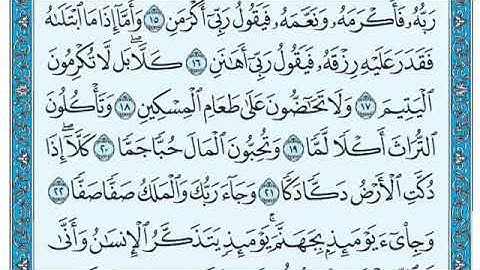 رَبُّهُۥ فَأَكْرَمَهُۥ وَنَعَّمَهُۥ فَيَقُولُ رَبِّىٓ أَكْرَمَنِ ۝١٥ وَأَمَّآ إِذَا مَا ٱبْتَلَىٰهُ
فَقَدَرَ عَلَيْهِ رِزْقَهُۥ فَيَقُولُ رَبِّىٓ أَهَٰنَنِ ۝١٦ كَلَّا ۖ بَل لَّا تُكْرِمُونَ
ٱلْيَتِيمَ ۝١٧ وَلَا تَحَٰٓضُّونَ عَلَىٰ طَعَامِ ٱلْمِسْكِينِ ۝١٨ وَتَأْكُلُونَ
ٱلتُّرَاثَ أَكْلًا لَّمًّا ۝١٩ وَتُحِبُّونَ ٱلْمَالَ حُبًّا جَمًّا ۝٢٠ كَلَّآ ۖ إِذَا
دُكَّتِ ٱلْأَرْضُ دَكًّا دَكًّا ۝٢١ وَجَآءَ رَبُّكَ وَٱلْمَلَكُ صَفًّا صَفًّا ۝٢٢
وَجِا۟ىٓءَ يَوْمَئِذٍۭ بِجَهَنَّمَ ۚ يَوْمَئِذٍ يَتَذَكَّرُ ٱلْإِنسَٰنُ وَأَنَّىٰ